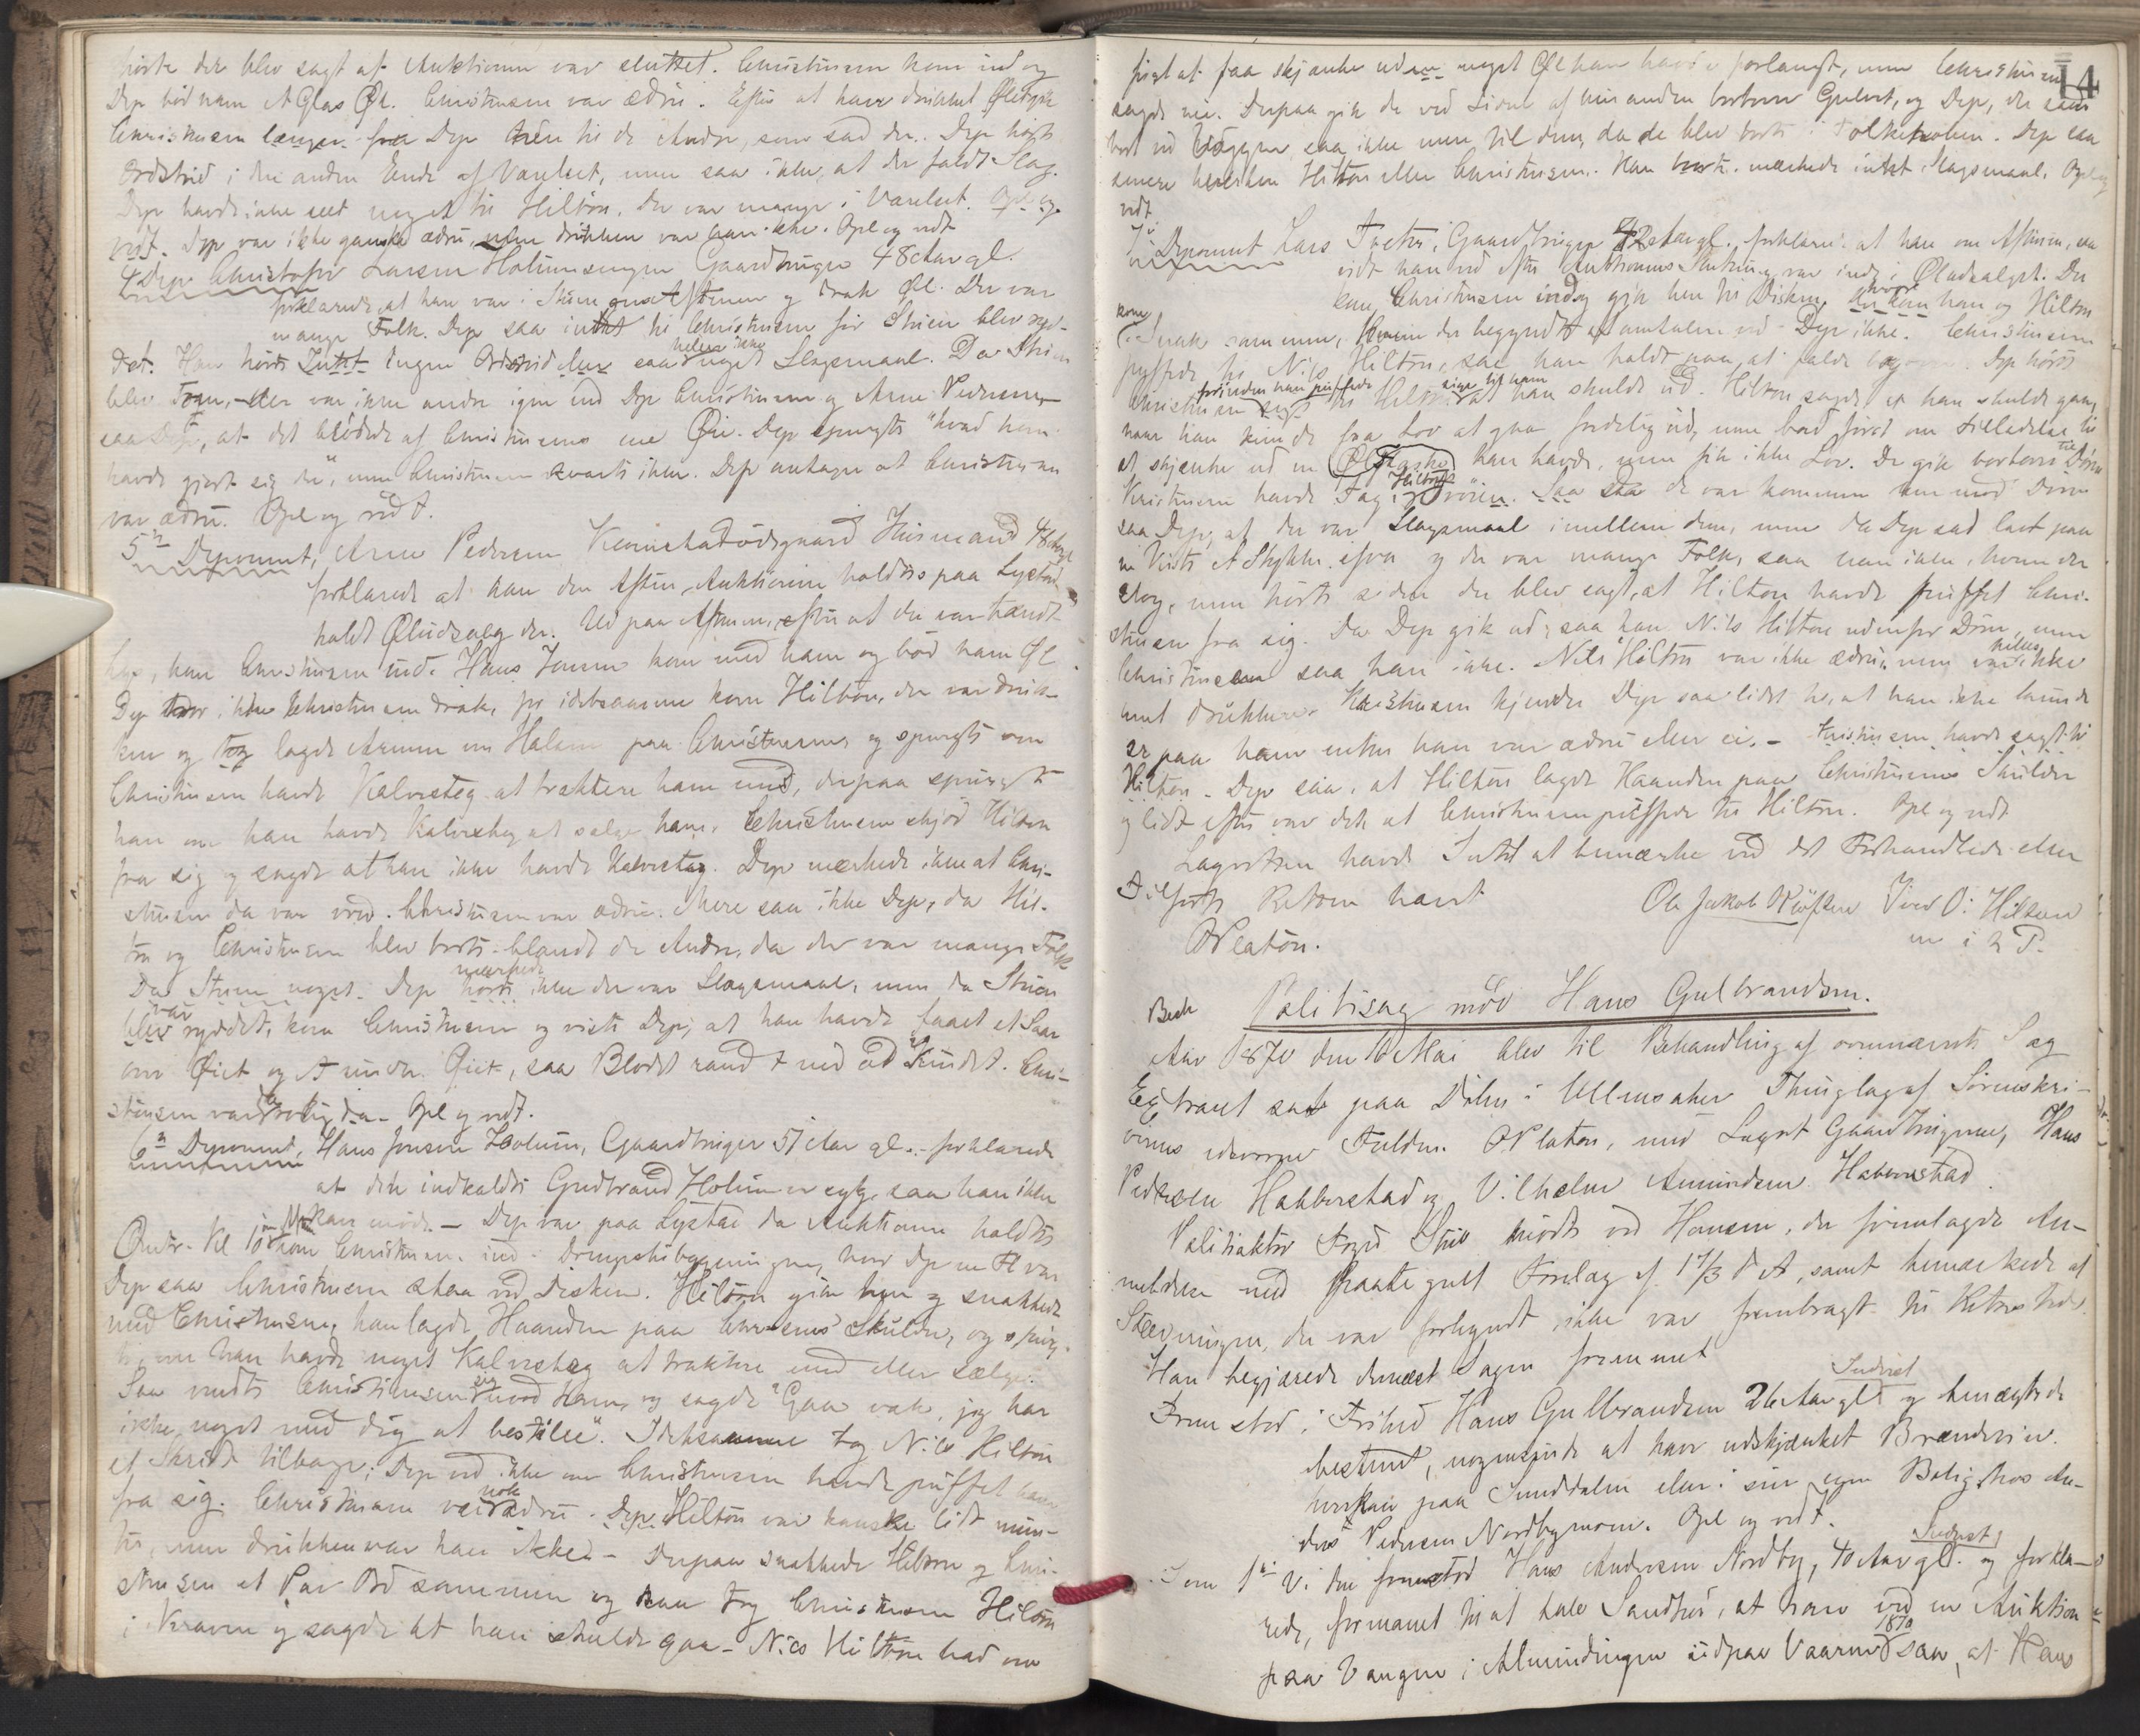 hørte der blev sagt at Auktionen var sluttet. Christensen kom ind og
Dep bød ham et Glas Øl. Christensen var ædru. Efter at have drukket Øllet gik
Christensen længer fra Dep hen til de Andre, som sad der. Dep hørte
Ordstrid i den anden Ende af Værelset, men saa ikke, at der faldt Slag.
Dep havde ikke seet noget til Hilton. Der var mange i Værelset. Opl og
vedt. Dep var ikke ganske ædru, men drukken var han ikke. Opl og vedt
4 Dep Christofer Larsen Holumsengen Gaardbruger 48 Aar gl.
forklarede, at han var i Stuen om Aftenen og drak Øl. Der var
mange Folk. Dep saa intet til Christensen før Stuen blev ryd-
det. Han hørte Intet ingen Ordstrid eller saa heller ikke noget Slagsmaal. Da Stuen
blev Tom, – der var ikke andre igjen end Dep Christensen og Arne Pedersen –
saa Dep, at det blødede af Christensens ene Øie. Dep spurgte "hvad han
havde gjort sig der", men Christensen svarte ikke. Dep antager at Christensen
var ædru. Opl og vedt.
5te Deponent, Arne Pedersen Husmand 48 Aar gl
forklarede at han den Aften, Auktionen holdtes paa Lystad
holdt Øludsalg der. Ud paa Aftenen, efter at der var tændt
Lys, kom Christensen ind. Hans Jensen kom med ham og bød ham Øl
Dep tror ikke Christensen drak, for idetsamme kom Hilton, der var druk-
ken og tog lagde Armen om Halsen paa Christensen og spurgte om
Christensen havde Kalvesteg at traktere ham med, derpaa spurgte
han om han havde Kalvesteg at sælge ham. Christensen skjød Hilton
fra sig og sagde at han ikke havde Kalvesteg. Dep mærkede ikke at Chri-
stensen da var vred. Christensen var ædru. Mere saa ikke Dep, da Hil-
ton og Christensen blev borte blandt de Andre, da der var mange Folk
Da Stuen noget. Dep hørte mærkede ikke der var Slagsmaal, men da Stuen
blev var ryddet, kom Christensen og viste Dep, at han havde faaet et Saar
over Øiet og et under Øiet, saa Blodet randt ned ad Kindet. Chri-
stensen var rolig da. – Opl og vedt.
6te Deponent, Hans Jensen Holum, Gaardbruger 51 Aar gl. – forklarede
at den indkaldte Gudbrand Holum er syg, saa han ikke
kan møde. – Dep var paa Lystad da Auktionen holdtes
Omtr. Kl 10 kom Christensen ind i Drengestubygningen, hvor Dep
Dep saa Christensen staa ved Disken. Hilton gik hen og snakkede
med Christensen, han lagde Haanden paa Christensens Skulder, og spurg-
te om han havde noget Kalvesteg at traktere med eller sælge.
Saa vendte Christensen sig mod ham, og sagde "Gaa væk, jeg har
ikke noget med dig at bestille". Idetsamme tog Nils Hilton
et Skridt tilbage; Dep ved ikke om Christensen havde puffet ham
fra sig. Christensen var nok ædru. Dep. Hilton var kanske lidt mun-
ter, men drukken var han ikke. – Derpaa snakkede Hilton og Chri-
stensen et Par Ord sammen og saa tog Christensen Hilton
i Kraven og sagde at han skulde gaa. – Nils Hilton bad om
14
først at faa skjænke ud noget Øl han havde forlangt, men Christensen
sagde nei. Derpaa gik de ved Siden af hinanden bortover Gulvet, og Dep, der sad
bort ved Væggen saa ikke mere til dem, da de blev borte i Folkehoben. Dep saa
senere hverken Hilton eller Christensen. Han mærkede intet Slagsmaal. Opl og
vedt.
7de Deponent Lars Gaardbruger 42 Aar gl. forklarede at han om Aftenen, saa
vidt han ved efter Auktionens Slutning var inde i Øludsalget. Der
kom Christensen ind og gik hen til Disken, hvor han og Hilton
kom i Snak sammen, hvem der begyndte Samtalen ved Dep ikke. Christensen
puffede til Nils Hilton, saa han holdt paa at falde bag. Dep hørte
Christensen forinden han puffede til Hilton sige til ham at han skulde ud. Hilton sagde at han skulde gaa,
naar han kunde faa Lov at gaa fredelig ud, men bad først om Tilladelse til
at skjænke ud en Ølflaske han havde, men fik ikke Lov. De gik bortover til Døren
Kristensen havde Tag i Hiltons Trøien. Saa da de var kommen hen mod Døren
saa Dep, at der var Slagsmaal imellem dem, men da Dep sad lavt paa
en Kiste et Stykke ifra og der var mange Folk, saa han ikke, hvem der
slog, men hørte siden der blev sagt, at Hilton havde puffet Chri-
stensen fra sig. Da Dep gik ud, saa han Nils Hilton udenfor Døren, men
Christensen saa han ikke. Nils Hilton var ikke ædru, men var heller ikke
fuldt drukken. Christensen kjender Dep saa lidet til, at han ikke kunde
se paa ham enten han var ædru eller ei. – Kristensen havde sagt til
Hilton – Dep saa, at Hilton lagde Haanden paa Christensens Skulder
og lidt efter var det at Christensen puffede til Hilton. Opl og vedt
Lagretten havde Intet at bemærke ved det Forhandlede eller
Tilførte Retten hævet
OPlatou.
Ole Jakob Iver O: Hilton
m i P.
Besk
Politisag mod Hans Gulbrandsen.
Aar 1870 den Mai blev til Behandling af ovennævnte Sag
Extraret sat paa Døhn i Ullensaker Thinglag af Sorenskri-
verens edsvorne Fuldm. OPlatou, med Lagret Gaardbrugerne, Hans
Pedersen Habberstad og Vilhelm Amundsen Haberstad.
Politiaktor Foged mødte ved Hansen, der fremlagde An-
meldelse med paategnet Forelæg af 17/3 d A, samt bemærkede at
Stevningen, der var forkyndt ikke var frembragt til Retsstedet.
Han begjærede dernæst Sagen fremmet
Fremstod i Frihed Hans Gulbrandsen 26 Aar gl Indrest og benægtede
bestemt, nogensinde at have udskjænket Brændeviin
hverken paa Sunddalen eller i sin egen Bolig hos An-
ders Pedersen Nordbymoen. Opl og vedt.
Som 1te Vidne fremstod Hans Andersen Nordby, 40 Aar gl. Indrest, og forkla-
rede, formanet til at tale Sandhed, at han ved en Auktion
paa Vangen i Almindingen udpaa Vaaren 1870 saa, at Hans